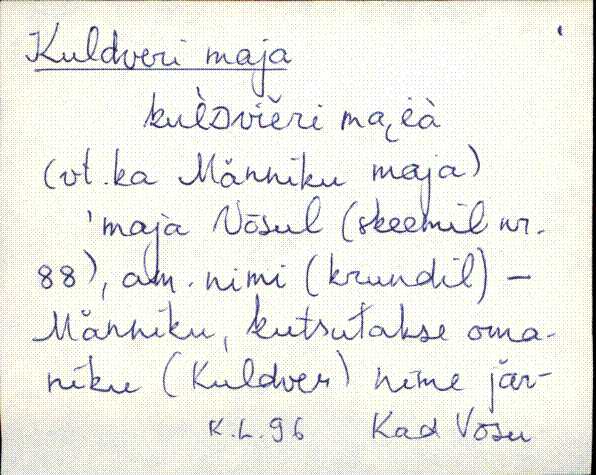 Kuldveri maja
kul̀Dvieri mai̯à
(vt. ka Männiku maja)
'maja Võsul (skeemil nr.
88), am. nimi (krundil) –
Männiku, kutsutakse oma-
niku (Kuldver) nime jär-
K.L. 96 Kad Võsu